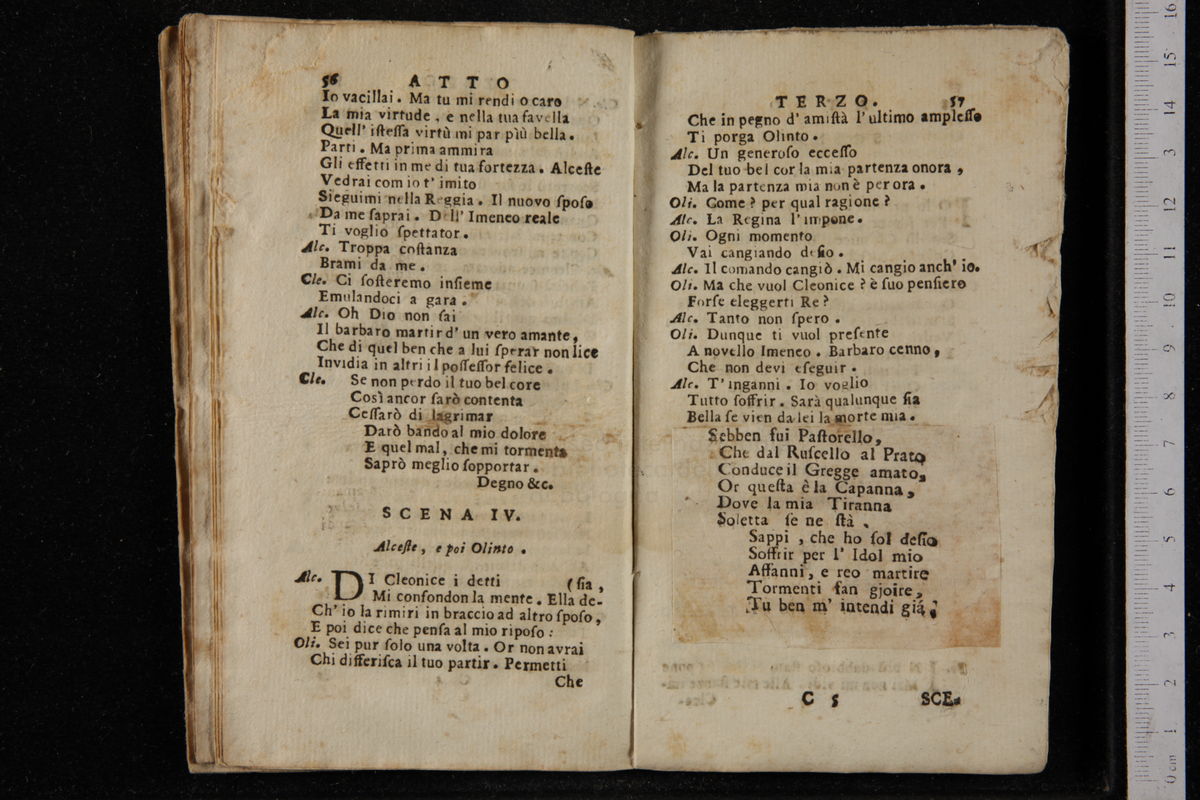 56 ATTO
Io vacillai. Ma tu mi rendi o caro
La mia virtude, e nella tua favella
Quell' iſteſſa virtù mi par più bella.
Parti. Ma prima ammira
Gli effetti in me di tua fortezza. Alceſte
Vedrai com io t' imito
Sieguimi nella Reggia. Il nuovo ſpoſo
Da me ſaprai. Dell' Imeneo reale
Ti voglio ſpettator.
Alc. Troppa coſtanza
Brami da me.
Cle. Ci ſoſteremo inſieme
Emulandoci a gara.
Alc. Oh Dio non ſai
Il barbaro martir d' un vero amante,
Che di quel ben che a lui ſperar non lice
Invidia in altri il poſſeſſor felice.
Cle. Se non perdo il tuo bel core
Così ancor ſarò contenta
Ceſſarò di lagrimar
Darò bando al mio dolore
E quel mal, che mi tormenta
Saprò meglio ſopportar.
Degno &c.
SCENA IV.
Alceſte, e poi Olinto.
Alc. DI Cleonice i detti (ſia,
Mi confondon la mente. Ella de-
Ch' io la rimiri in braccio ad altro ſpoſo,
E poi dice che penſa al mio ripoſo:
Oli. Sei pur ſolo una volta. Or non avrai
Chi differiſca il tuo partir. Permetti
Che
TERZO. 57
Che in pegno d' amiſtà l' ultimo ampleſſo
Ti porga Olinto.
Alc. Un generoſo ecceſſo
Del tuo bel cor la mia partenza onora,
Ma la partenza mia non è per ora.
Oli. Come? per qual ragione?
Alc. La Regina l' impone.
Oli. Ogni momento
Vai cangiando deſio.
Alc. Il comando cangiò. Mi cangio anch' io.
Oli. Ma che vuol Cleonice? è ſuo penſiero
Forſe eleggerti Re?
Alc. Tanto non ſpero.
Oli. Dunque ti vuol preſente
A novello Imeneo. Barbaro cenno,
Che non devi eſeguir.
Alc. T' inganni. Io voglio
Tutto ſoffrir. Sarà qualunque ſia
Bella ſe vien da lei la morte mia.
Sebben fui Paſtorello,
Che dal Ruſcello al Prato
Conduce il Gregge amato,
Or queſta è la Capanna,
Dove la mia Tiranna
Soletta ſe ne ſtà,
Sappi, che ho ſol deſio
Soffrir per l' Idol mio
Affanni, e reo martire
Tormenti fan gjoire,
Tu ben m' intendi giá.
C 5 SCE-